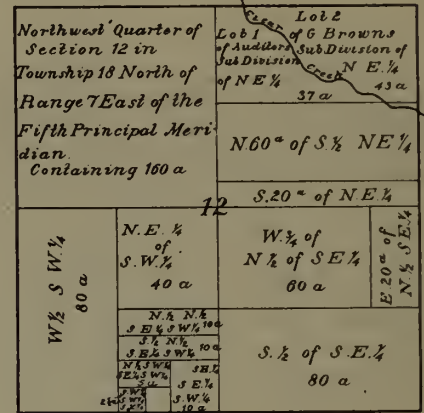 Northwest Quarter of
Section 12 in
Township 18 North of
Range 7 East of the
Fifth Principal Meri-
dian.
Containing 160 a
Clear
Creek
Lot 1
of Auditors
Sub Division
of NE¼
37 a
Lot 2
of G Browns
Sub Division of
N E.¼
43 a
N.60 a of S.½ NE¼
S.20 a of N.E.¼
12
W½ S W.¼
80 a
N.E.¼
of
S.W.¼
40 a
W.¾ of
N½ of SE¼
60 a
E.20 a of
N.½ SE.¼
N.½ N.½
S E¼ S W¼ 10 a
S.½ N.½
S.E¼ S W¼ 10 a
N.½ S W¼
SE¼ S W¼
5 a
SE.¼
S E.¼
S.W.¼
10 a
S.½ of S.E.¼
80 a